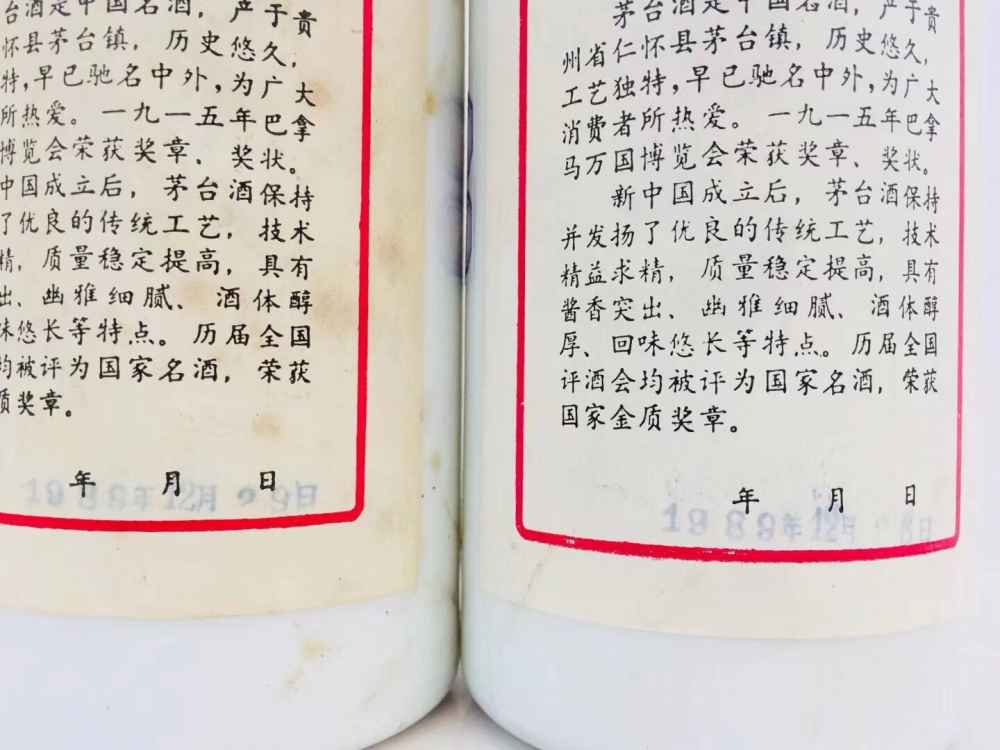 台酒是中国名酒，产于贵
怀县茅台镇，历史悠久，
特，早已驰名中外，为广大
所热爱。一九一五年巴拿
博览会荣获奖章、奖状。
中国成立后，茅台酒保持
了优良的传统工艺，技术
精，质量稳定提高，具有
出、幽雅细腻、酒体醇
味悠长等特点。历届全国
均被评为国家名酒，荣获
质奖章。
年 月 日
1989年12月29日
茅台酒是中国名酒，产于贵
州省仁怀县茅台镇，历史悠久，
工艺独特，早已驰名中外，为广大
消费者所热爱。一九一五年巴拿
马万国博览会荣获奖章、奖状。
新中国成立后，茅台酒保持
并发扬了优良的传统工艺，技术
精益求精，质量稳定提高，具有
酱香突出、幽雅细腻、酒体醇
厚、回味悠长等特点。历届全国
评酒会均被评为国家名酒，荣获
国家金质奖章。
年 月 日
1989年12月 8日